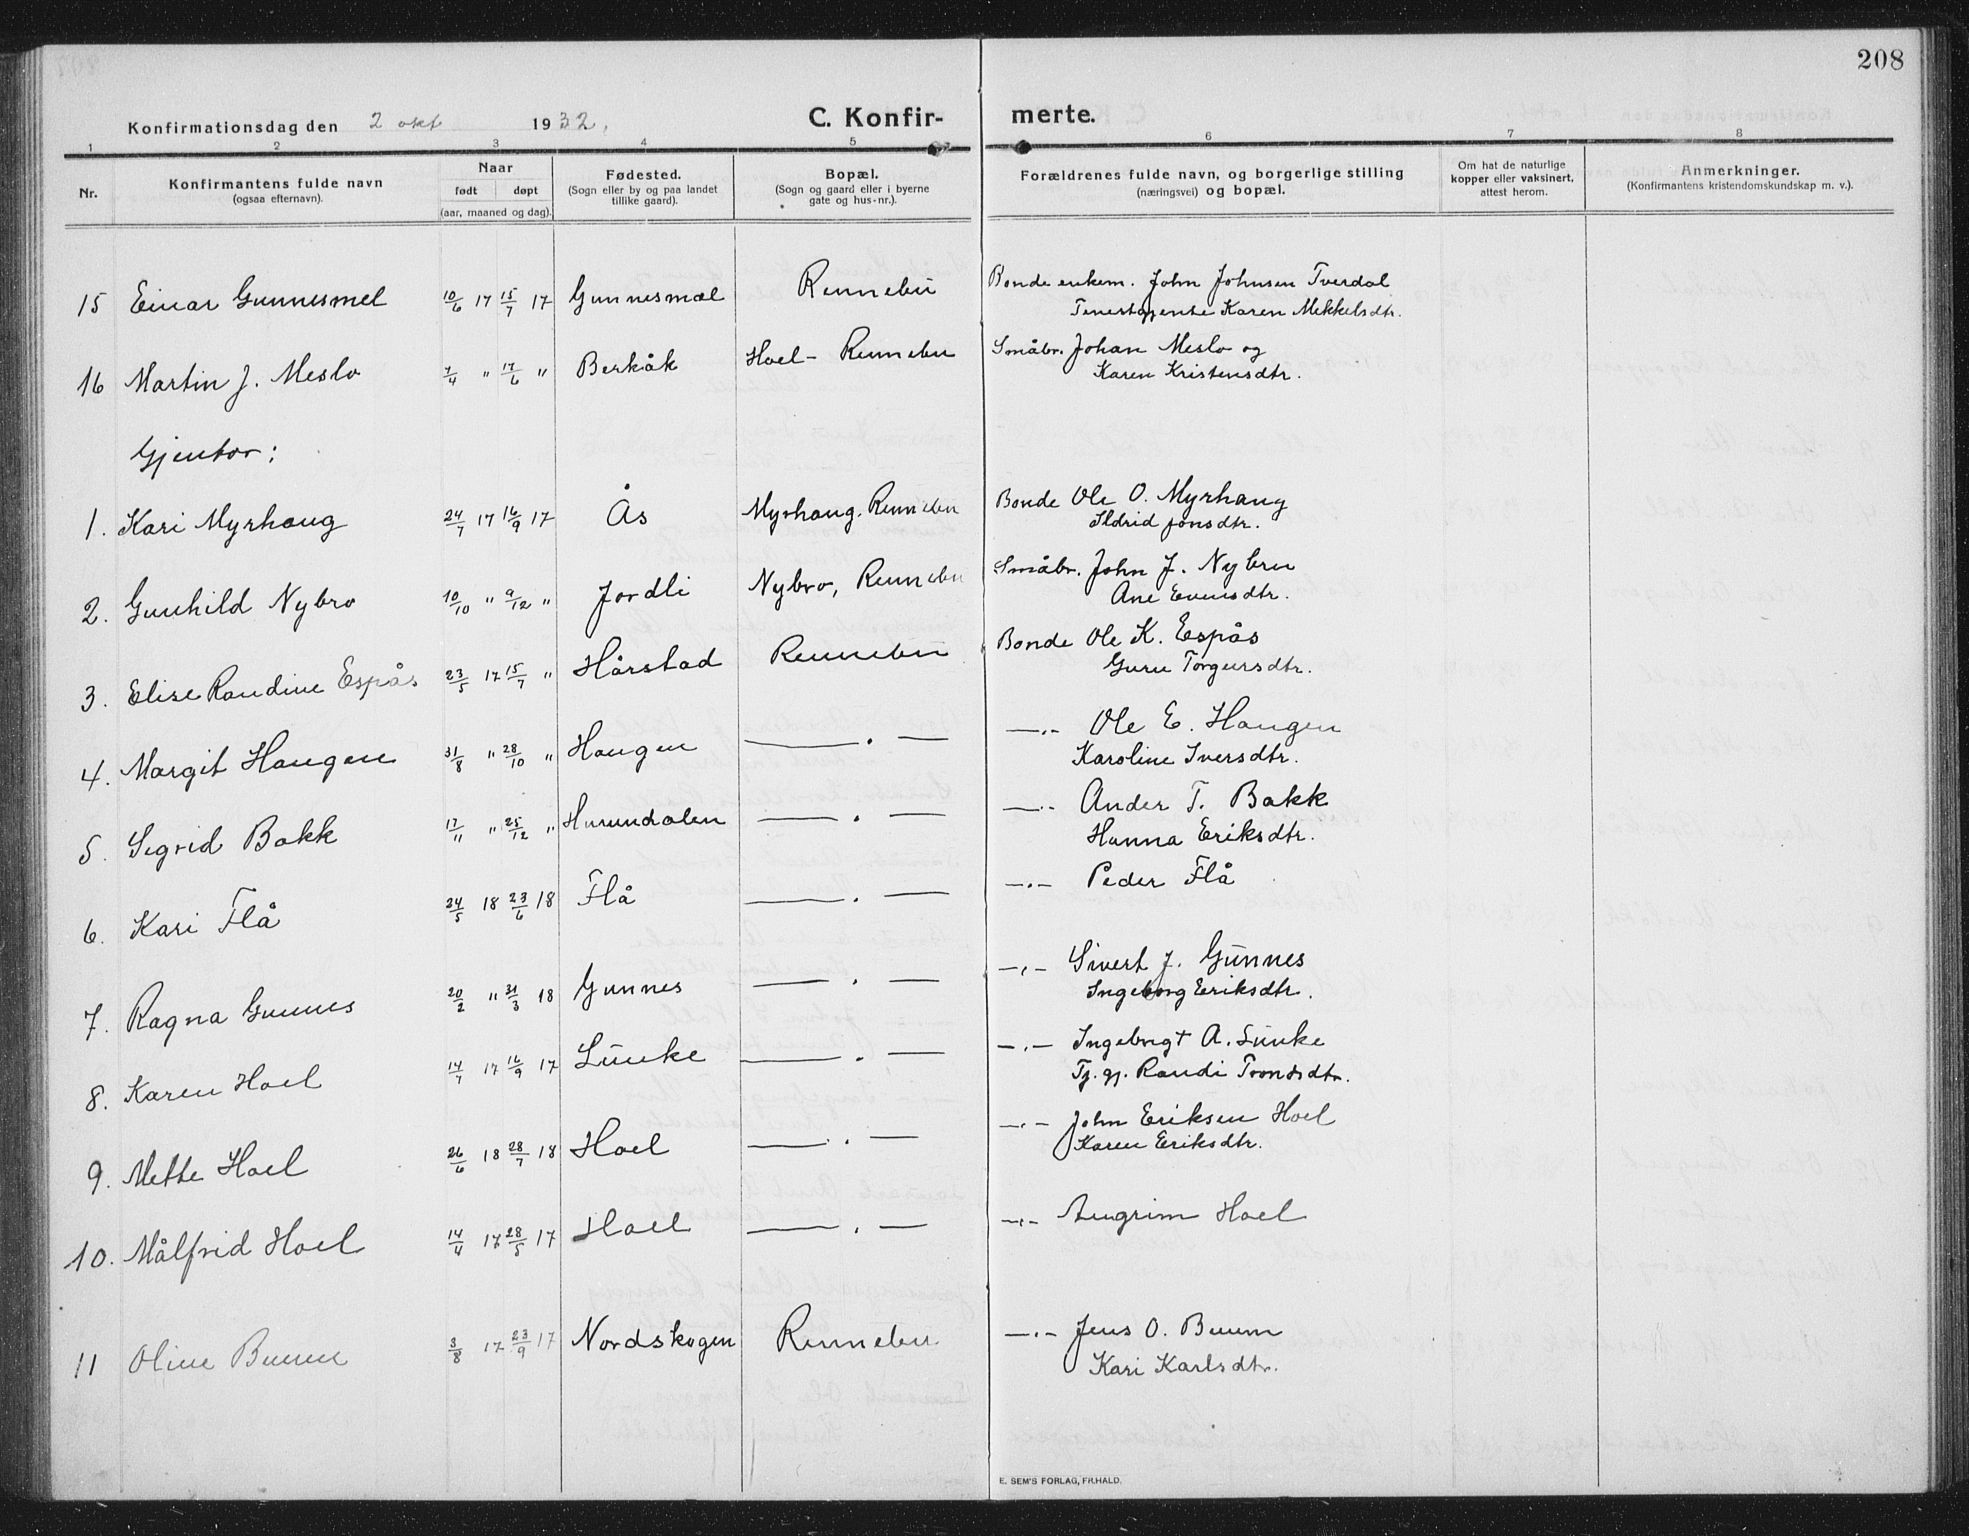 208
Konfirmationsdag den 2 okt 1932. C. Konfir- merte.
1 2 3 4 5 6 7 8
Nr. Konfirmantens fulde navn (ogsaa efternavn). Naar født døpt (aar, maaned og dag). Fødested. (Sogn eller by og paa landet tillike gaard). Bopæl. (Sogn og gaard eller i byerne gate og hus-nr.). Forældrenes fulde navn, og borgerlige stilling (næringsvei) og bopæl. Om hat de naturlige kopper eller vaksinert, attest herom. Anmerkninger. (Konfirmantens kristendomskundskap m. v.).
15 Einar Gunnesmel 10/6 17 15/7 17 Gunnesmæl Rennebu Bonde enkem. John Johnsen Tverdal
Tenestgjente Karen Mekkelsdtr.
16 Martin J. Meslo 7/4 " 17/6 " Berkåk Hoel - Rennebu Småbr. Johan Meslo og
Karen Kristensdtr.
Gjentor;
1. Kari Myrhaug 24/7 17 16/9 17 Ås Myrhaug. Rennebu Bonde Ole O. Myrhaug
Ildrid Jonsdtr.
2. Gunhild Nybro 10/10 " 9/12 " Jordli Nybro, Rennebu Småbr. John J. Nybru
Ane Evensdtr.
3. Elise Randine Espås 23/5 17 15/7 " Hårstad Rennebu Bonde Ole K. Espås
Guru Torgersdtr.
4. Margit Haugen 31/8 " 28/10 " Haugen —.— —.— Ole E. Haugen
Karoline Iversdtr.
5. Sigrid Bakk 17/11 " 25/12 " Hurundalen —.— —.— Ander T. Bakk
Hanna Eriksdtr.
6. Kari Flå 24/5 18 23/6 18 Flå —.— —.— Peder Flå
7. Ragna Gunnes 20/2 " 31/3 18 Gunnes —.— —.— Sivert J. Gunnes
Ingeborg Eriksdtr.
8. Karen Hoel 14/7 17 16/9 17 Lunke —.— —.— Ingebrigt A. Lunke
Tj. gj. Randi Trondsdtr.
9. Mette Hoel 26/6 18 28/7 18 Hoel —.— —.— John Eriksen Hoel
Karen Eriksdtr.
10. Målfrid Hoel 14/4 17 28/5 17 Hoel —.— —.— Angrim Hoel
11 Oline Buum 3/8 17 23/9 17 Nordskogen Rennebu. —.— Jens O. Buum
Kari Karlsdtr.
E. SEM'S FORLAG, FR.HALD.